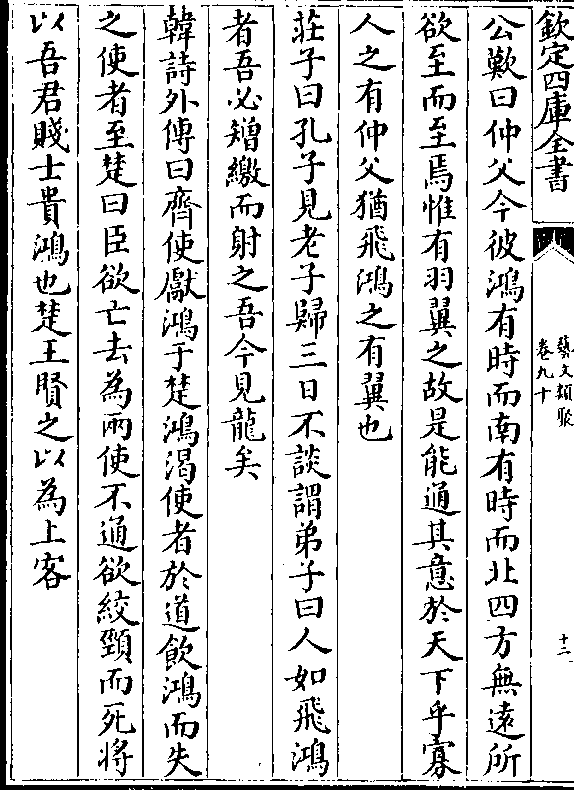 欽定四庫全書
藝文類聚
卷九十
十二
公歎曰仲父今彼鴻有時而南有時而北四方無遠所
欲至而至焉惟有羽翼之故是能通其意於天下乎寡
人之有仲父猶飛鴻之有翼也
莊子曰孔子見老子歸三日不談謂弟子曰人如飛鴻
者吾必矰繳而射之吾今見龍矣
韓詩外傳曰齊使獻鴻于楚鴻渴使者於道飲鴻而失
之使者至楚曰臣欲亡去為兩使不通欲絞頸而死將
以吾君賤士貴鴻也楚王賢之以為上客